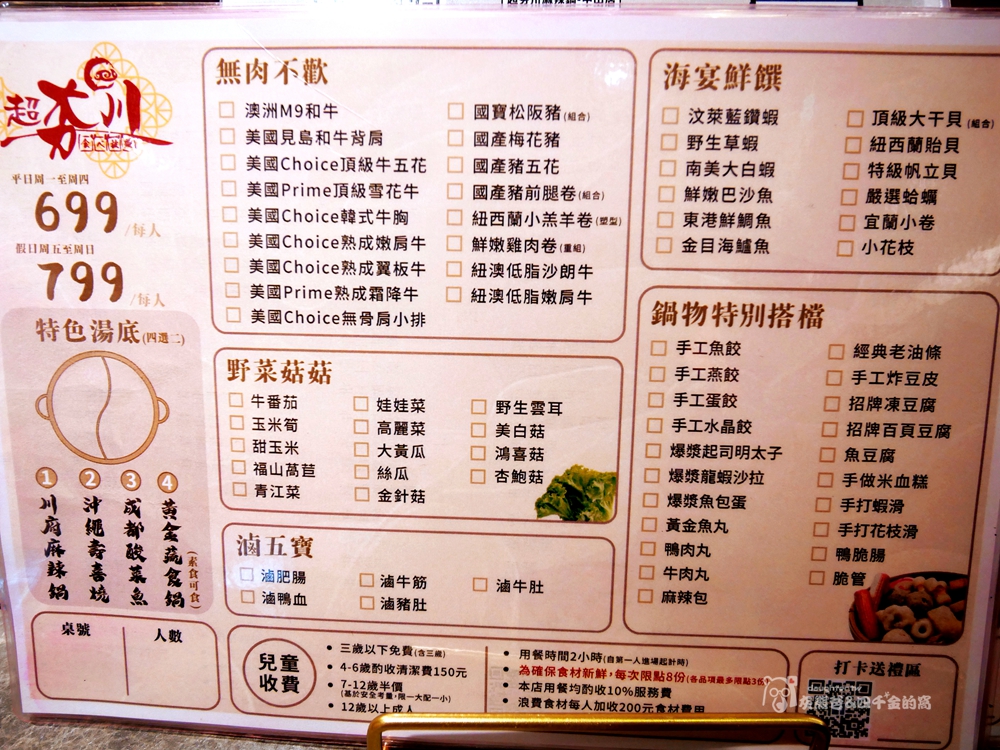 超夯川
食べ放題
平日周一至周四
699/每人
假日周五至周日
799/每人
特色湯底(四選二)
1 川府麻辣鍋
2 沖繩壽喜燒
3 成都酸菜魚
4 黃金蔬食鍋(素食可食)
桌號
人數
無肉不歡
澳洲M9和牛
美國見島和牛背肩
美國Choice頂級牛五花
美國Prime頂級雪花牛
美國Choice韓式牛胸
美國Choice熟成嫩肩牛
美國Choice熟成翼板牛
美國Prime熟成霜降牛
美國Choice無骨肩小排
國寶松阪豬(組合)
國產梅花豬
國產豬五花
國產豬前腿卷(組合)
紐西蘭小羔羊卷(塑型)
鮮嫩雞肉卷(重組)
紐澳低脂沙朗牛
紐澳低脂嫩肩牛
野菜菇菇
牛番茄
玉米筍
甜玉米
福山萵苣
青江菜
娃娃菜
高麗菜
大黃瓜
絲瓜
金針菇
野生雲耳
美白菇
鴻喜菇
杏鮑菇
滷五寶
滷肥腸
滷鴨血
滷牛筋
滷豬肚
滷牛肚
海宴鮮饌
汶萊藍鑽蝦
野生草蝦
南美大白蝦
鮮嫩巴沙魚
東港鮮鯛魚
金目海鱸魚
頂級大干貝(組合)
紐西蘭貽貝
特級帆立貝
嚴選蛤蠣
宜蘭小卷
小花枝
鍋物特別搭檔
手工魚餃
手工燕餃
手工蛋餃
手工水晶餃
爆漿起司明太子
爆漿龍蝦沙拉
爆漿魚包蛋
黃金魚丸
鴨肉丸
牛肉丸
麻辣包
經典老油條
手工炸豆皮
招牌凍豆腐
招牌百頁豆腐
魚豆腐
手做米血糕
手打蝦滑
手打花枝滑
鴨脆腸
脆管
兒童收費
• 三歲以下免費(含三歲)
• 4-6歲酌收清潔費150元
• 7-12歲半價
(基於安全考量,限一大配一小)
• 12歲以上成人
• 用餐時間2小時(自第一人進場起計時)
• 為確保食材新鮮,每次限點8份(各品項最多限點3份)
• 本店用餐均酌收10%服務費
• 浪費食材每人加收200元食材費用
打卡送禮區
灰爵爸&四千金的窩